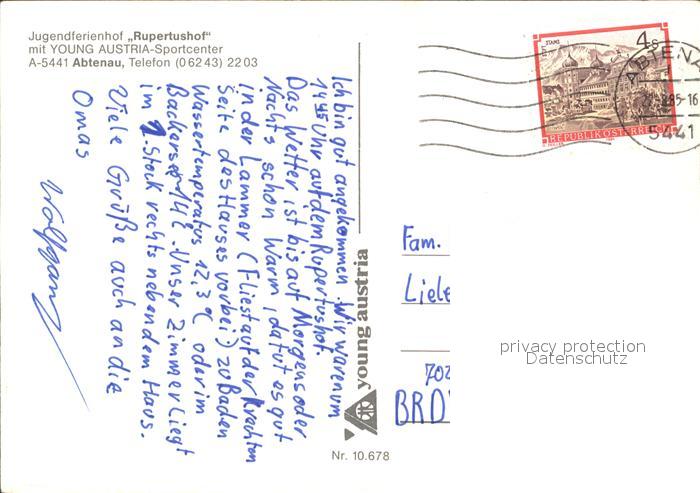 Jugendferienhof „Rupertushof"
mit YOUNG AUSTRIA-Sportcenter
A-5441 Abtenau, Telefon (0 62 43) 22 03
Ich bin gut angekommen. Wir waren um
14 45 Uhr auf dem Rupertushof.
Das Wetter ist bis auf Morgens oder
Nachts schon Warm, da tut es gut
in der Lammer (Fliest auf der Rechten
Seite des Hauses vorbei) zu Baden
Wassertemperatur 12,3°C oder im
14°C. Unser Zimmer Liegt
im 1. Stock rechts neben dem Haus.
Viele Grüße auch an die
Omas
Wolfgang
young austria
Nr. 10.678
STAMS
4s
REPUBLIK ÖSTERREICH
ABTENA
85-16
5441
Fam.
Liele
702
BRD
privacy protection
Datenschutz